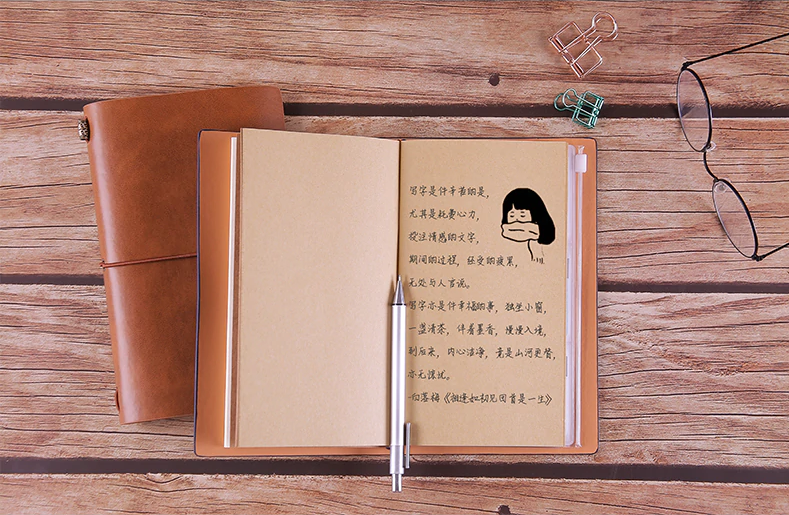 写字是件辛苦的是,
尤其是耗费心力,
投注情感的文字,
期间的过程, 经受的疲累,
无处与人言说。
写字亦是件幸福的事, 独坐小窗,
一盏清茶, 伴着墨香, 慢慢入境,
到后来, 内心洁净, 竟是山河更替,
亦无谋忧。
-白落梅《相逢如初见回首是一生》